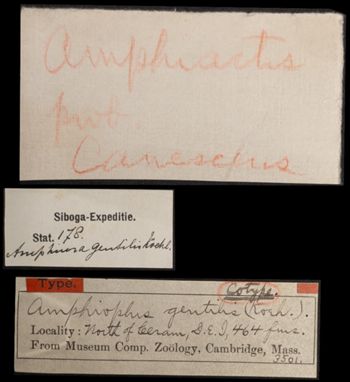 Amphiactis
prob.
Canescens
Siboga-Expeditie.
Stat. 178.
Amphiura gentilis Koehl.
Type.
Cotype.
Amphiophus gentilis (Koeh.).
Locality: North of Ceram, D.E.I, 464 fms.
From Museum Comp. Zoölogy, Cambridge, Mass.
5501.